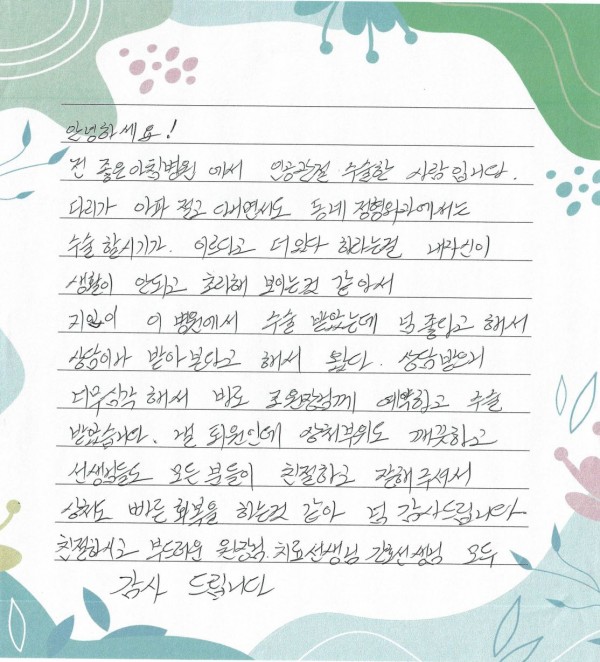 안녕하세요!
전 좋은아침병원 에서 인공관절 수술한 사람입니다.
다리가 아파 절고 다니면서도 동네 정형외과에서는
수술 할시기가 이르다고 더 하라는걸 내자신이
생활이 안되고 초라해 보이는것 같아서
지인이 이 병원에서 수술 받았는데 넘 좋다고 해서
상담이나 받아본다고 해서 왔다. 상담받으니
너무심각 해서 바로 조원장님께 예약하고 수술
받았습니다. 낼 퇴원인데 상처부위도 깨끗하고
선생님들도 모든 분들이 친절하고 잘해주셔서
상처도 빠른 회복을 하는것 같아 넘 감사드립니다
친절하시고 부드러운 원장님, 치료선생님 간호선생님 모두
감사 드립니다